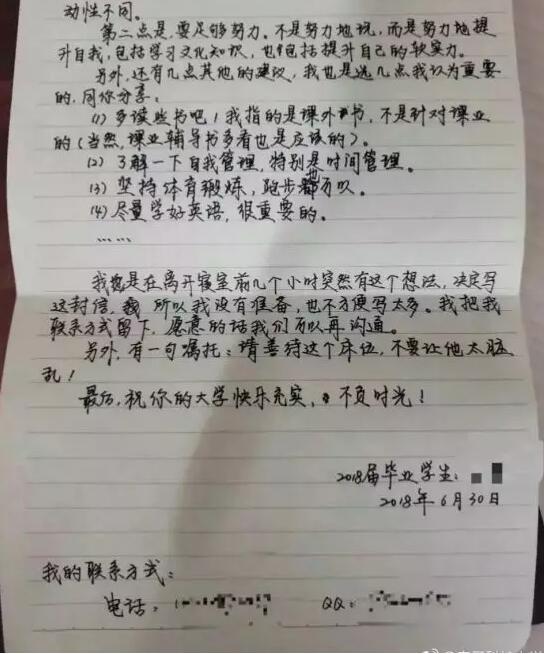 动性不同。
第二点是，要足够努力。不是努力地玩，而是努力地提
升自我，包括学习文化知识，也包括提升自己的软实力。
另外，还有几点其他的建议，我也是选几点我认为重要
的，同你分享：
(1) 多读些书吧！我指的是课外书，不是针对课业
的（当然，课业辅导书多看也是应该的）。
(2) 了解一下自我管理，特别是时间管理。
(3) 坚持体育锻炼，跑步也可以。
(4) 尽量学好英语，很重要的。
……
我也是在离开寝室前几个小时突然有这个想法，决定写
这封信，所以我没有准备，也不方便写太多。我把我
联系方式留下，愿意的话我们可以再沟通。
另外，有一句嘱托：请善待这个床位，不要让他太脏
乱！
最后，祝你的大学快乐充实，不负时光！
2018届毕业学生：
2018年6月30日
我的联系方式：
电话：1 QQ：